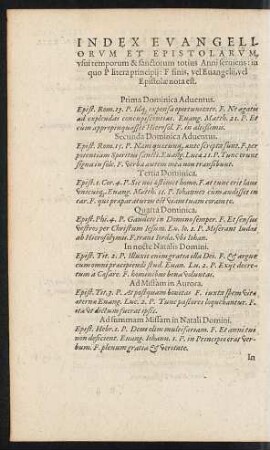 INDEX EVANGELI
ORVM ET EPISTOLARVM,
vsui temporum & sanctorum totius Anni seruiens: in
quo P litera principij: F finis, vel Euangelij, vel
Epistolæ nota est.
Prima Dominica Aduentus.
Epist. Rom. 13. P. Idq́; expensa oportunitate. F. Ne agatis
ad explendas concupiscentias. Euang. Matth. 21. P. Et
cum appropinquasset Hierosol. F. in altissimis.
Secunda Dominica Aduentus.
Epist. Rom. 15. P. Nam quæcunq; ante scripta sunt. F. per
potentiam Spiritus sancti. Euang. Luca 21. P. Tunc erunt
signa in sole. F. Verba autem mea non transibunt.
Tertia Dominica.
Epist. 1. Cor. 4. P. Sic nos æstimet homo. F. at tunc erit laus
vnicuiq;. Euang. Matth. 11. P. Iohannes cum audisset in
car. F. qui præparaturus est viam tuam coram te.
Quarta Dominica.
Epist. Phi. 4. P. Gaudete in Domino semper. F. Et sensus
vestros per Christum Iesum. Eu. Io. 1. P. Miserant Iudæi
ab Hierosolymis. F. trans Iorda. vbi Iohan.
In nocte Natalis Domini.
Epist. Tit. 2. P. Illuxit enim gratia illa Dei. F. & argue
cum omni præcipiendi stud. Euan. Lu. 2. P. Exijt decre-
tum à Cæsare. F. hominibus bona voluntas.
Ad Missam in Aurora.
Epist. Tit. 3. P. At postquam bonitas F. iuxta spem vitæ
æternæ Euang. Luc. 2. P. Tunc pastores loquebantur. F.
ita vt dictum fuerat ipsis.
Ad summam Missam in Natali Domini.
Epist. Hebr. 1. P. Deus olim multifariam. F. Et anni tui
non deficient. Euang. Iohann. 1. P. in Principio erat ver-
bum. F. plenum gratia & veritate.
In